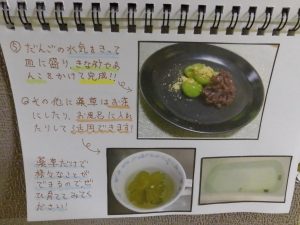 ⑤だんごの水気をきって
皿に盛り、きな粉やあ
んこをかけて完成!!
その他に薬草はお茶
にしたり、お風呂に入れ
たりして活用できます!
薬草だけで
様々なことが
できるので、ぜ
ひ育ててみてく
ださい!